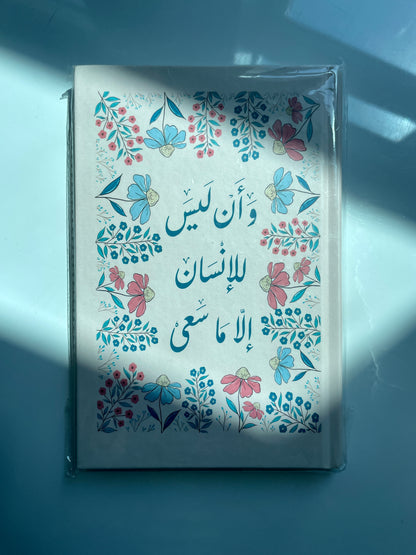 وَأَن لَيسَ
للإنْسَان
إلّا مَا سَعَى